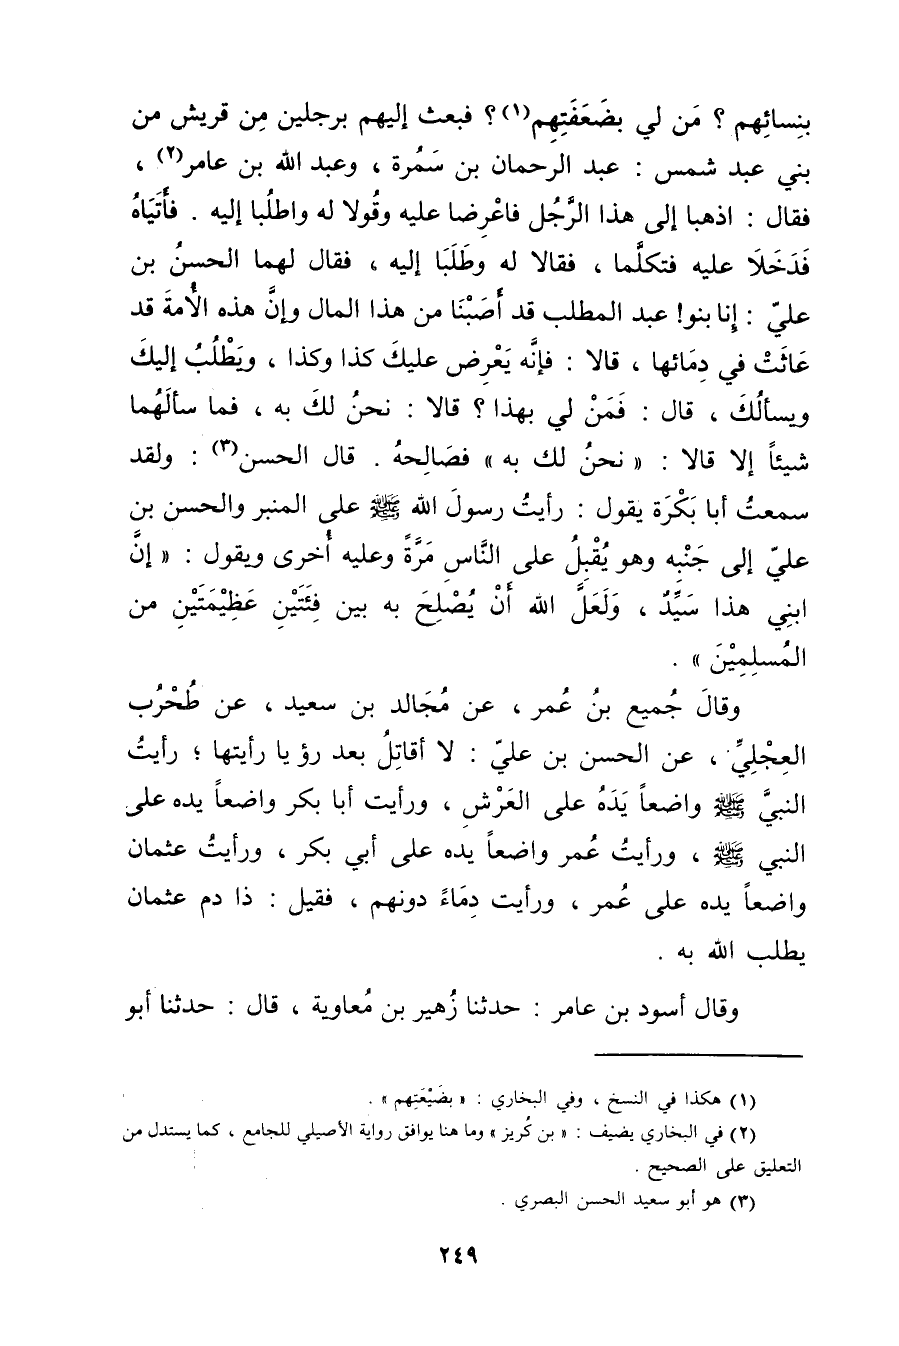 بِنسائِهم ؟ مَن لي بضَعَفَتِهِم(١) ؟ فبعث إليهم برجلين مِن قريش من
بني عبد شمس : عبد الرحمان بن سَمُرة ، وعبد الله بن عامر(٢) ،
فقال : اذهبا إلى هذا الرَّجُل فاعْرِضا عليه وقُولا له واطلُبا إليه . فأَتَيَاهُ
فَدَخَلَا عليه فتكلَّما ، فقالا له وطَلَبَا إليه ، فقال لهما الحسنُ بن
عليّ : إِنا بنو! عبد المطلب قد أَصَبْنَا من هذا المال وإنَّ هذه الأُمةَ قد
عَاثَتْ في دِمَائها ، قالا : فإنَّه يَعْرِض عليكَ كذا وكذا ، ويَطْلُبُ إليكَ
ويسألُكَ ، قال : فَمَنْ لي بهذا ؟ قالا : نحنُ لكَ به ، فما سألَهُما
شيئاً إلا قالا : « نحنُ لك به » فصَالِحهُ . قال الحسن(٣) : ولقد
سمعتُ أبا بَكْرَة يقول : رأيتُ رسولَ الله ﷺ على المنبر والحسن بن
عليّ إلى جَنْبِه وهو يُقْبِلُ على النَّاس مَرَّةً وعليه أُخرى ويقول : « إنَّ
ابنِي هذا سَيِّدٌ ، وَلَعَلَّ الله أَنْ يُصْلِحَ به بين فِئَتَيْنِ عَظِيْمَتَيْنِ من
المُسلِمِيْنَ » .
وقالَ جُميع بنُ عُمر ، عن مُجَالد بن سعيد ، عن طُحْرُب
العِجْلِيِّ ، عن الحسن بن عليّ : لا أقاتِلُ بعد رؤيا رأيتها ؛ رأيتُ
النبيَّ ﷺ واضعاً يَدَهُ على العَرْش ، ورأيت أبا بكر واضعاً يده على
النبي ﷺ ، ورأيتُ عُمر واضعاً يده على أبي بكر ، ورأيتُ عثمان
واضعاً يده على عُمر ، ورأيت دِمَاءً دونهم ، فقيل : ذا دم عثمان
يطلب الله به .
وقال أسود بن عامر : حدثنا زُهير بن مُعاوية ، قال : حدثنا أبو
(١) هكذا في النسخ ، وفي البخاري : « بضَيْعَتِهم » .
(٢) في البخاري يضيف : « بن كُريز » وما هنا يوافق رواية الأصيلي للجامع ، كما يستدل من
التعليق على الصحيح .
(٣) هو أبو سعيد الحسن البصري .
٢٤٩